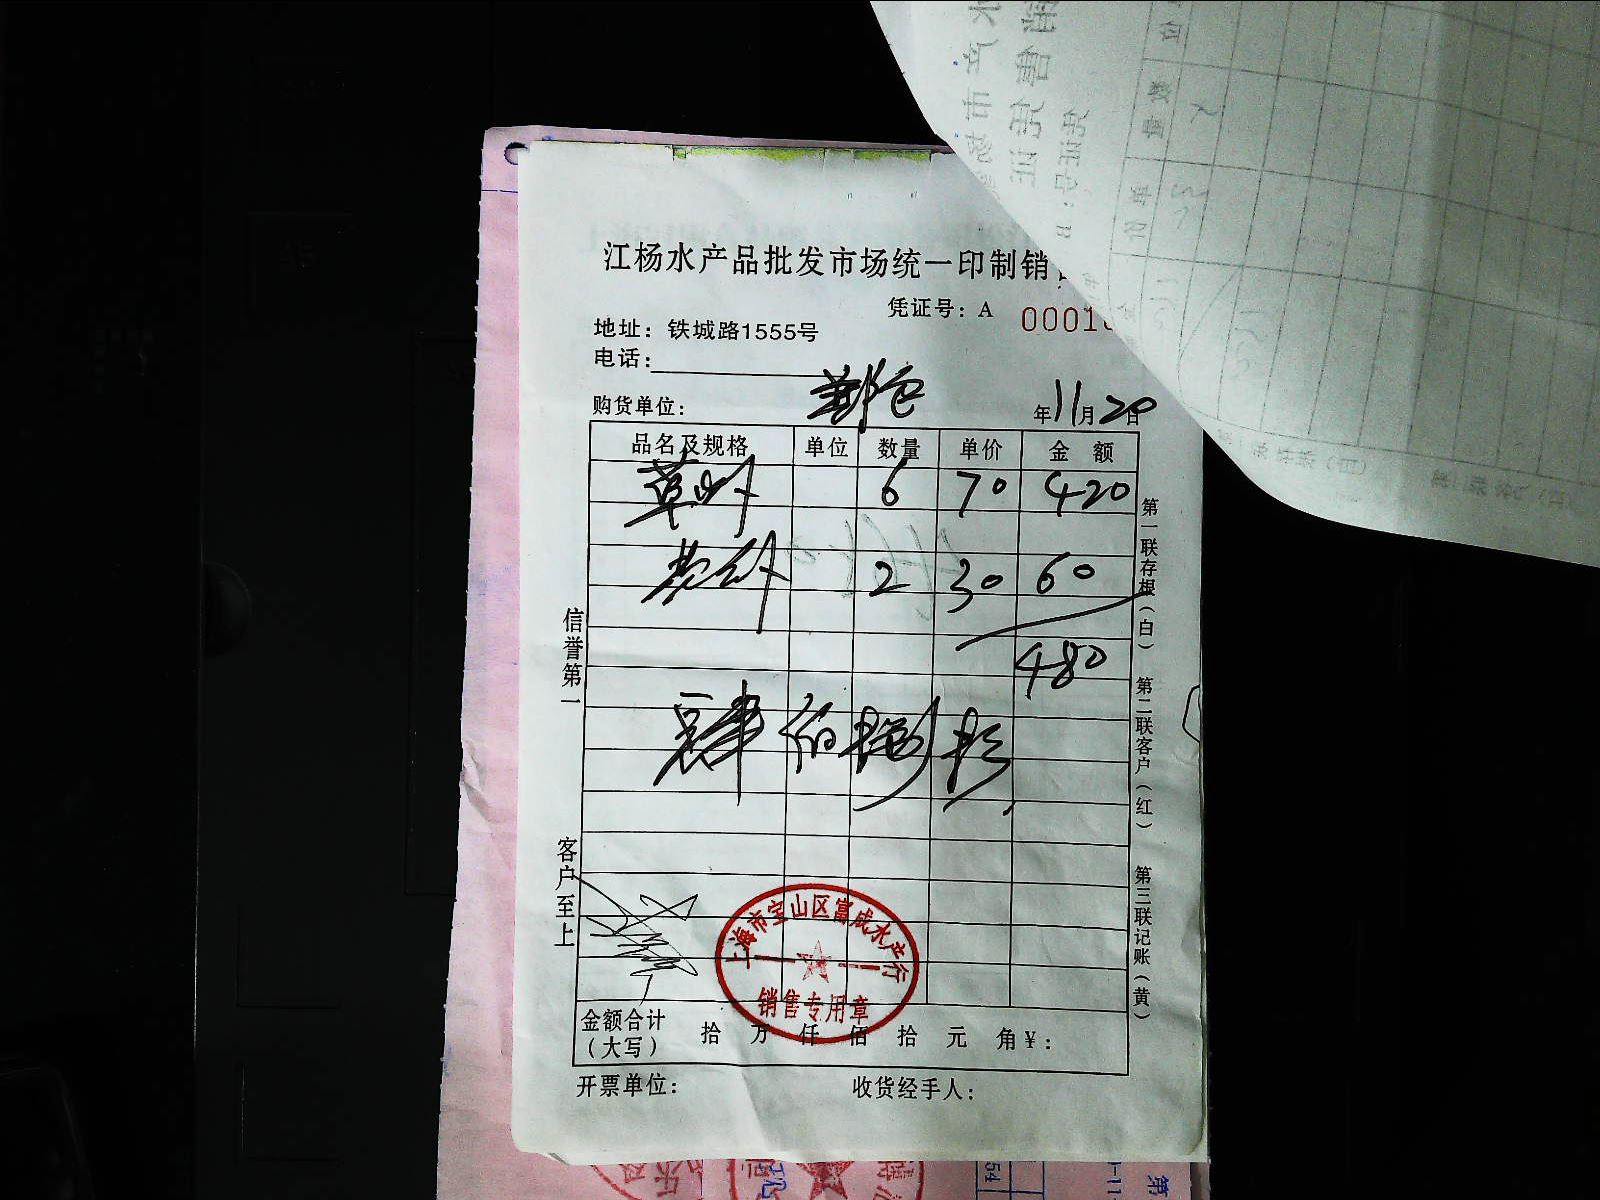 江杨水产品批发市场统一印制销
凭证号：A 0001
地址：铁城路1555号
电话：
购货单位： 年11月20日
品名及规格 单位 数量 单价 金额
草虾 6 70 420
2 30 60
480
肆佰捌拾
信誉第一
客户至上
第一联存根（白）
第二联客户（红）
第三联记账（黄）
上海市宝山区富成水产行
销售专用章
金额合计（大写） 拾 万 仟 佰 拾 元 角 ¥：
开票单位： 收货经手人：